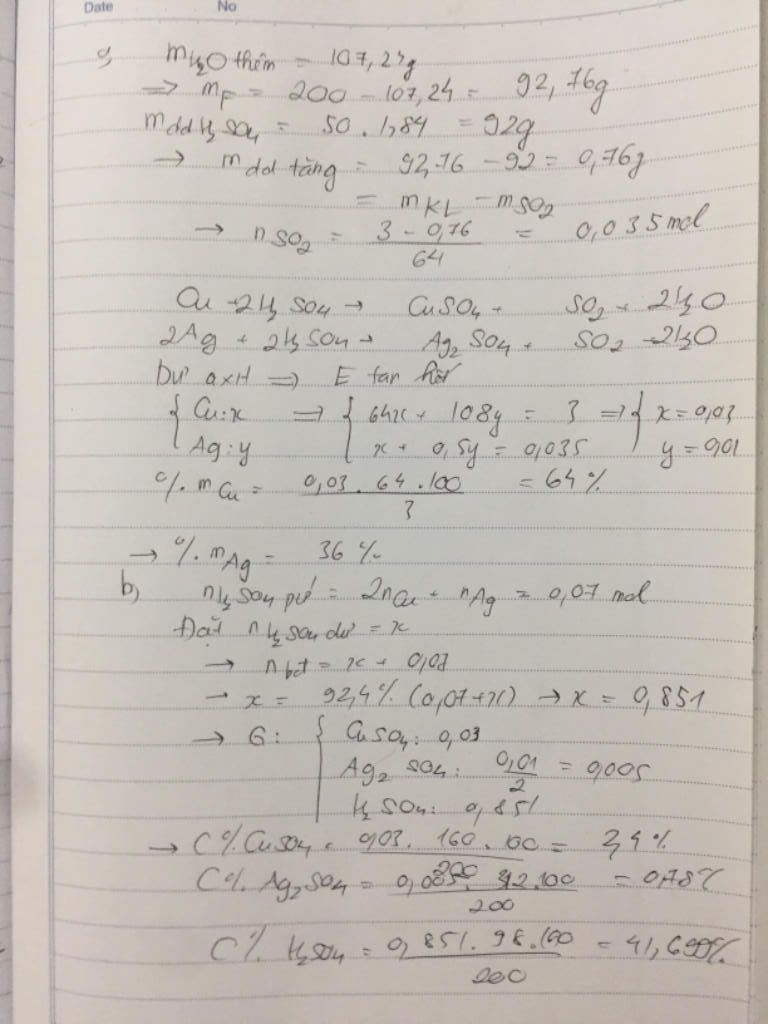 Date No
a, mH2O thêm = 107,24g
=> mF = 200 - 107,24 = 92,76g
mdd H2SO4 = 50 . 1,84 = 92g
→ mdd tăng = 92,76 - 92 = 0,76g
= mKL - mSO2
→ nSO2 = (3 - 0,76)/64 = 0,035 mol
Cu + 2H2SO4 → CuSO4 + SO2 + 2H2O
2Ag + 2H2SO4 → Ag2SO4 + SO2 + 2H2O
Dư axit => E tan hết
{ Cu: x => { 64x + 108y = 3 => { x = 0,03
Ag: y x + 0,5y = 0,035 y = 0,01
% mCu = (0,03 . 64 . 100)/3 = 64%
→ % mAg = 36%
b) nH2SO4 pứ = 2nCu + nAg = 0,07 mol
Đặt nH2SO4 dư = x
→ nbđ = x + 0,07
→ x = 92,4% (0,07+x) → x = 0,851
→ G: { CuSO4: 0,03
Ag2SO4: 0,01/2 = 0,005
H2SO4: 0,851
→ C% CuSO4 = (0,03 . 160 . 100)/200 = 2,4%
C% Ag2SO4 = (0,005 . 312 . 100)/200 = 0,78%
C% H2SO4 = (0,851 . 98 . 100)/200 = 41,699%